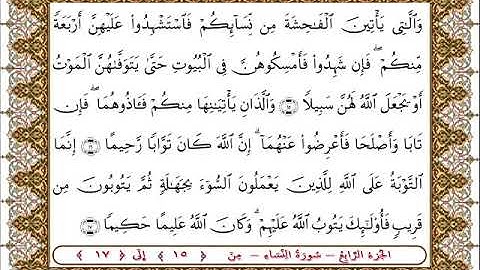 وَالَّٰتِى يَأْتِينَ الْفَٰحِشَةَ مِن نِّسَآئِكُمْ فَاسْتَشْهِدُوا۟ عَلَيْهِنَّ أَرْبَعَةً
مِّنكُمْ ۖ فَإِن شَهِدُوا۟ فَأَمْسِكُوهُنَّ فِى الْبُيُوتِ حَتَّىٰ يَتَوَفَّىٰهُنَّ الْمَوْتُ
أَوْ يَجْعَلَ اللَّهُ لَهُنَّ سَبِيلًا ﴿١٥﴾ وَالَّذَانِ يَأْتِيَٰنِهَا مِنكُمْ فَـَٔاذُوهُمَا ۖ فَإِن
تَابَا وَأَصْلَحَا فَأَعْرِضُوا۟ عَنْهُمَآ ۗ إِنَّ اللَّهَ كَانَ تَوَّابًا رَّحِيمًا ﴿١٦﴾ إِنَّمَا
التَّوْبَةُ عَلَى اللَّهِ لِلَّذِينَ يَعْمَلُونَ السُّوٓءَ بِجَهَٰلَةٍ ثُمَّ يَتُوبُونَ مِن
قَرِيبٍ فَأُو۟لَٰٓئِكَ يَتُوبُ اللَّهُ عَلَيْهِمْ ۗ وَكَانَ اللَّهُ عَلِيمًا حَكِيمًا ﴿١٧﴾
الجزء الرابع - سورة النساء - من ﴿ ١٥ ﴾ إلى ﴿ ١٧ ﴾